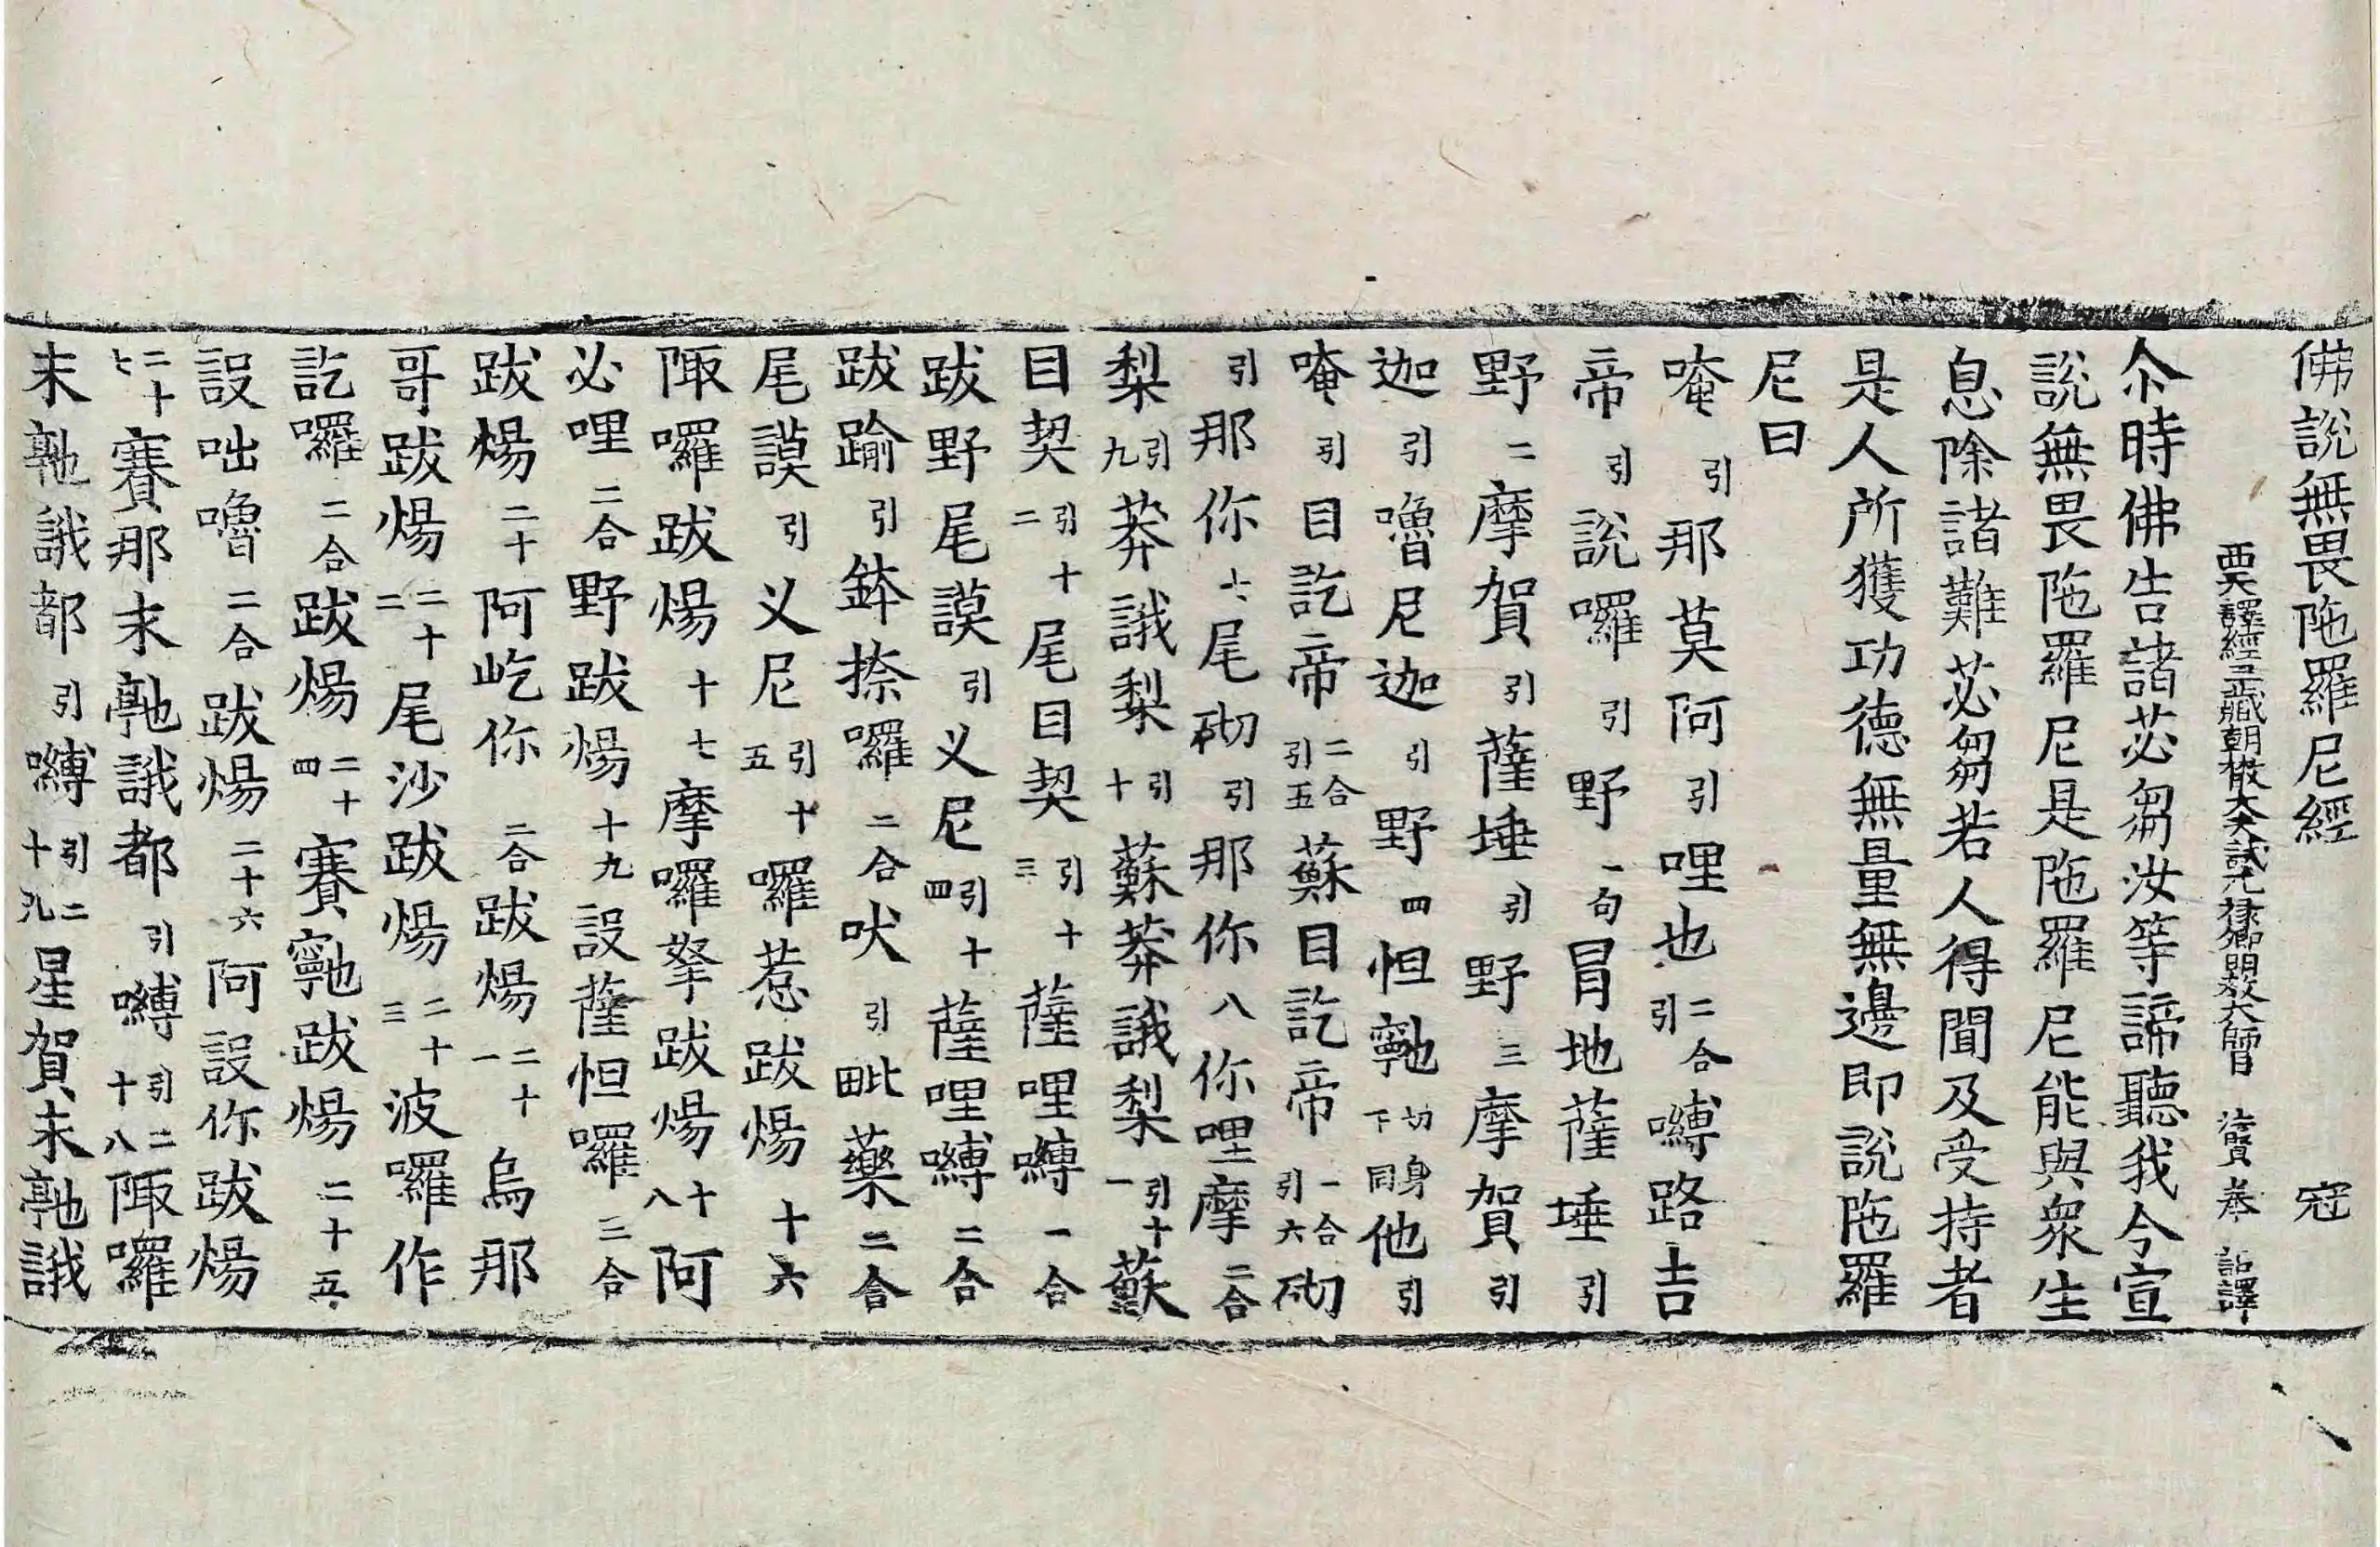 佛說無畏陁羅尼經 宼
西天譯經三藏朝散大夫試光祿卿明教大師臣 法賢奉 詔譯
尒時佛告諸苾芻汝等諦聽我今宣
說無畏陁羅尼是陁羅尼能與衆生
息除諸難苾芻若人得聞及受持者
是人所獲功德無量無邊即說陁羅
尼曰
唵引那莫阿引哩也二合引嚩路吉
帝引說囉引野一句冒地薩埵引
野二摩賀引薩埵引野三摩賀引
迦引嚕尼迦引野四怛𩕳切身下同他引
唵引目訖帝二合引五蘇目訖帝二合引六砌
引那你七尾砌引那你八你哩摩二合
梨引九莽誐梨引十蘇莽誐梨引十一蘇
目契引十二尾目契引十三薩哩嚩二合
跋野尾謨引义尼引十四薩哩嚩二合
跋踰引鉢捺囉二合吠引毗藥二合
尾謨引义尼引十五囉惹跋煬十六
陬囉跋煬十七摩囉拏跋煬十八阿
必哩二合野跋煬十九設薩怛囉三合
跋煬二十阿屹你二合跋煬二十一烏那
哥跋煬二十二尾沙跋煬二十三波囉作
訖囉二合跋煬二十四賽𩕳跋煬二十五
設咄嚕二合跋煬二十六阿設你跋煬
二十七賽那末䭾誐都引嚩引二十八陬囉
末䭾誐都引嚩引二十九星賀末䭾誐